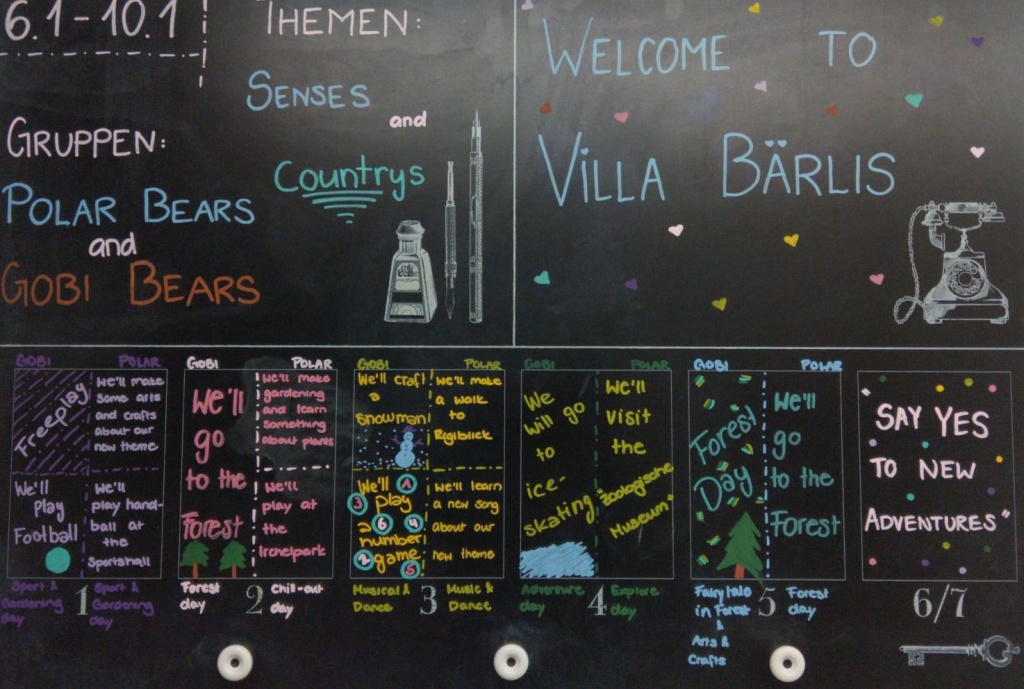 6.1-10.1
GRUPPEN:
POLAR BEARS
and
GOBI BEARS
THEMEN:
SENSES
and
Countrys
WELCOME TO
VILLA BÄRLIS
GOBI POLAR
Freeplay
We'll make
some arts
and crafts
about our
new theme
We'll
play
Football
We'll
play hand-
ball at
the
Sportshall
Sport &
Gardening
day
1
Sport &
Gardening
day
GOBI POLAR
We'll
go
to the
Forest
We'll make
gardening
and learn
something
about plants
We'll
play at
the
Irchelpark
Forest
day
2
Chill-out
day
GOBI POLAR
We'll craft
a
snowman
We'll make
a walk
to
Rigiblick
We'll
play
a
number
game
1
3
6
4
2
5
We'll learn
a new song
about our
new theme
Musical &
Dance
3
Music &
Dance
GOBI POLAR
We
will go
to
ice-
skating
We'll
visit
the
"Zoologische
Museum"
Adventure
day
4
Explore
day
GOBI POLAR
Forest
Day
We'll
go
to the
Forest
Fairytale
in Forest
&
Arts &
Crafts
5
Forest
day
SAY YES
TO NEW
ADVENTURES"
6/7